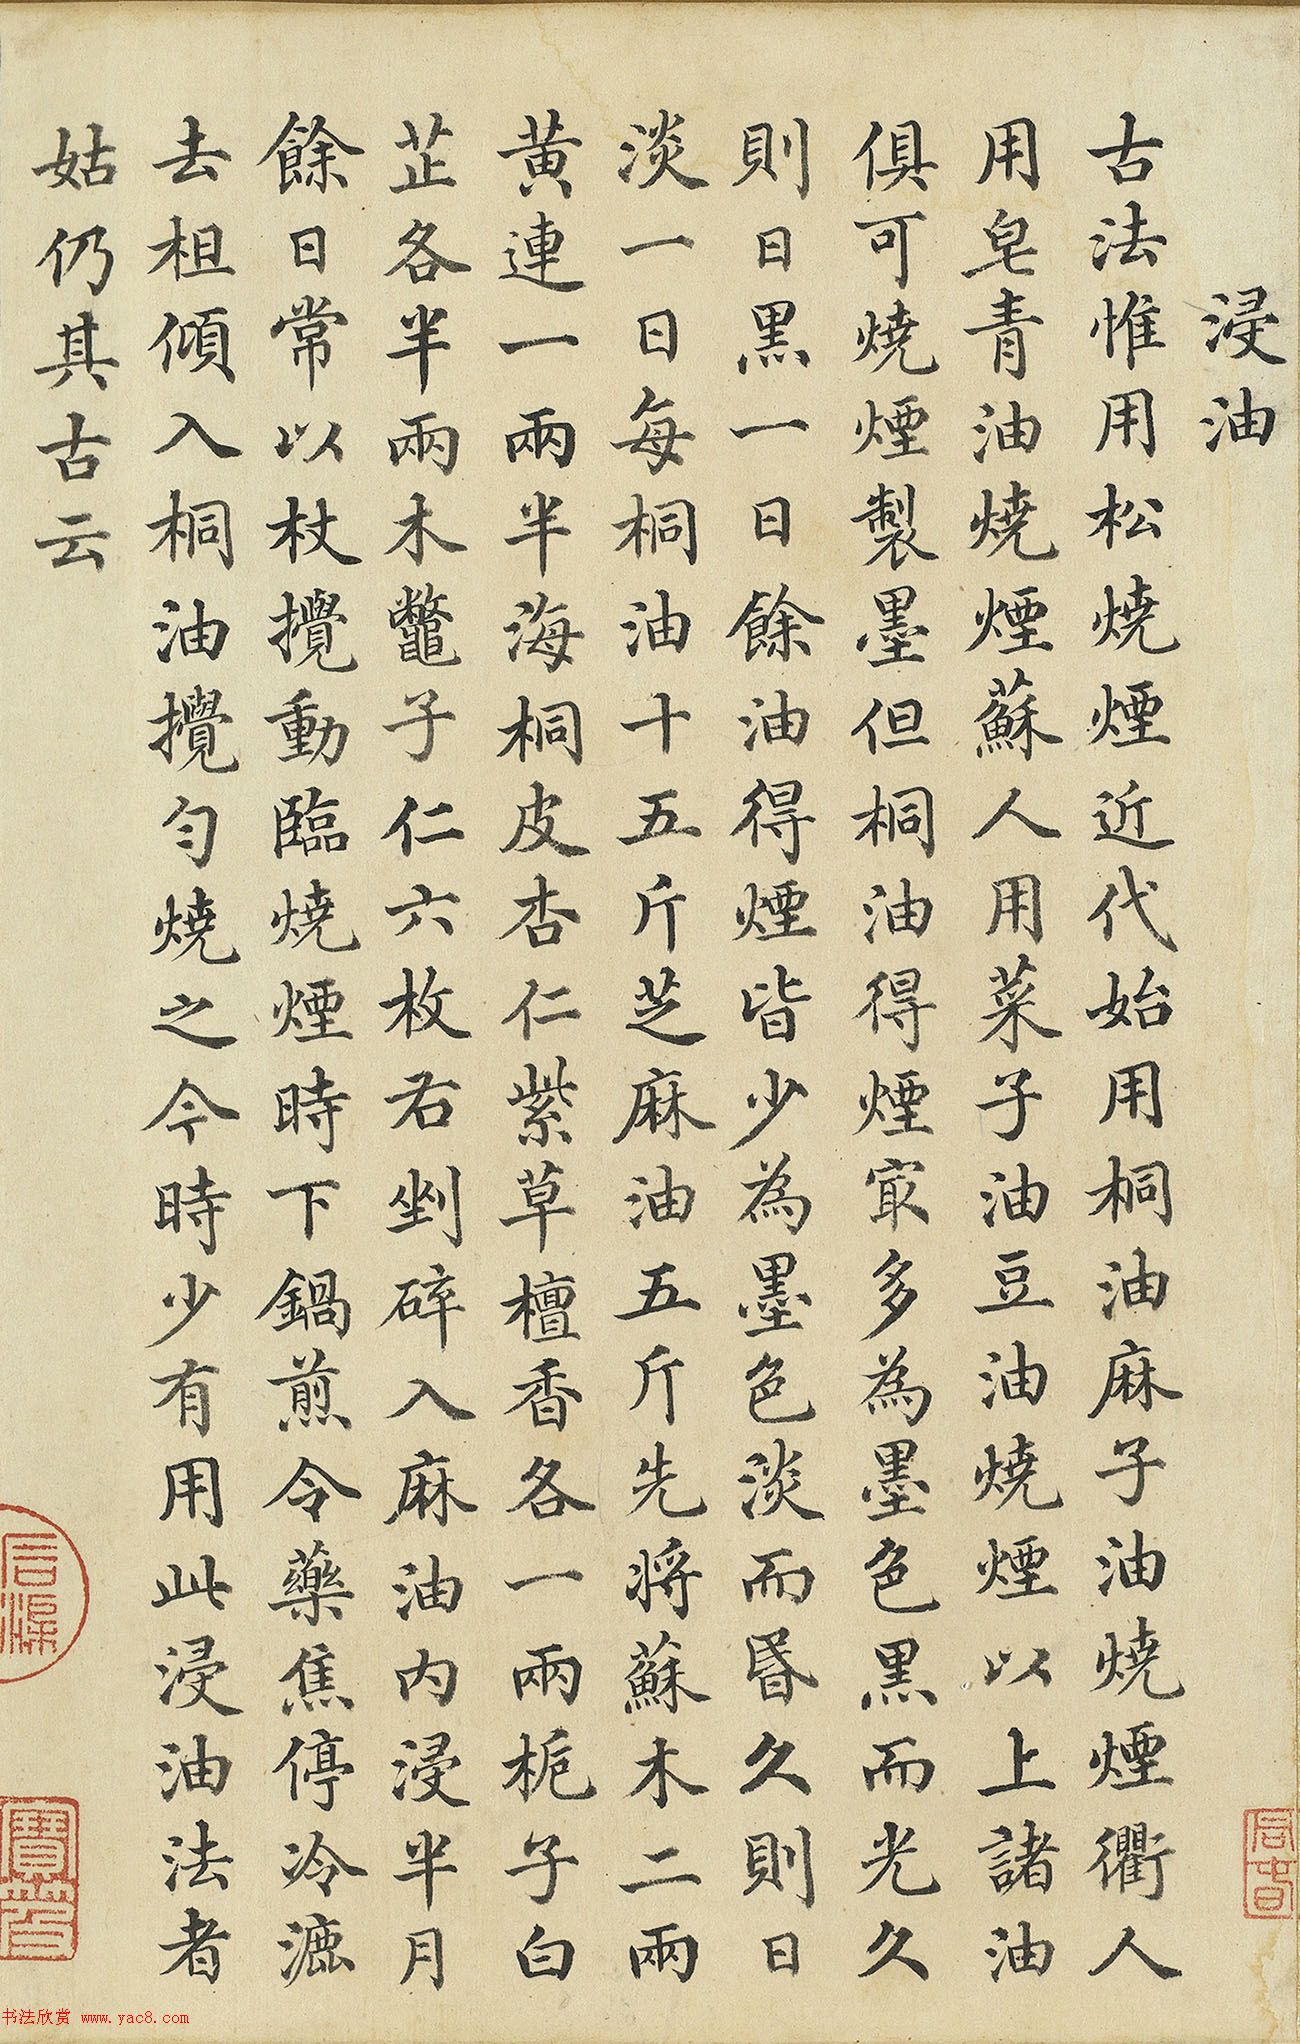 浸油
古法惟用松燒煙近代始用桐油麻子油燒煙衢人
用皂青油燒煙蘇人用菜子油豆油燒煙以上諸油
俱可燒煙製墨但桐油得煙㝡多為墨色黒而光久
則日黒一日餘油得煙皆少為墨色淡而昬久則日
淡一日每桐油十五斤芝麻油五斤先將蘇木二兩
黄連一兩半海桐皮杏仁紫草檀香各一兩栀子白
芷各半兩木鼈子仁六枚右剉碎入麻油内浸半月
餘日常以杖攪動臨燒煙時下鍋煎令藥焦停冷漉
去柤傾入桐油攪勻燒之今時少有用此浸油法者
姑仍其古云
书法欣赏 www.yac8.com